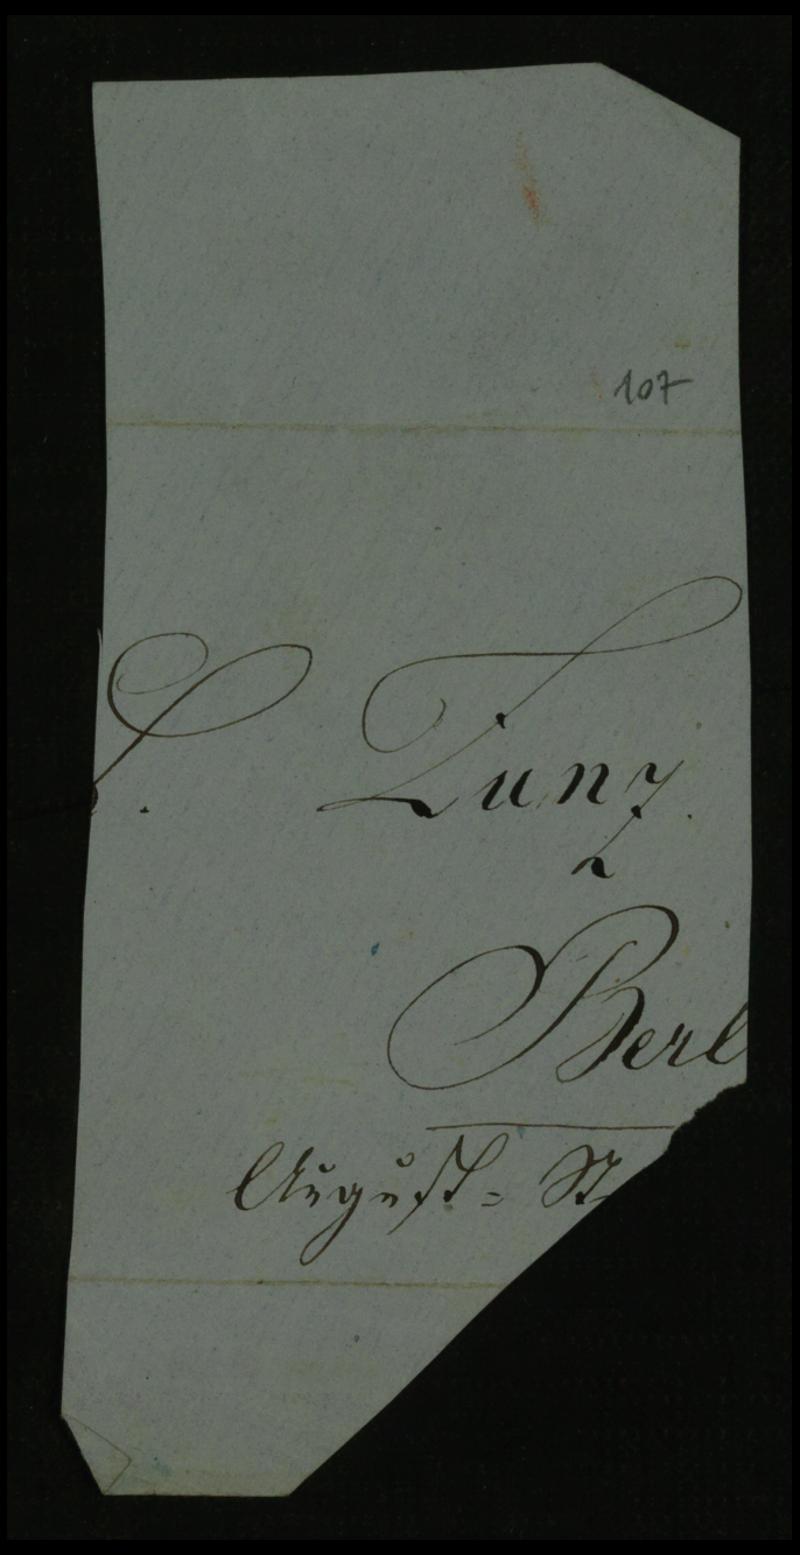 107
L. Zunz.
in
Berl
August= St